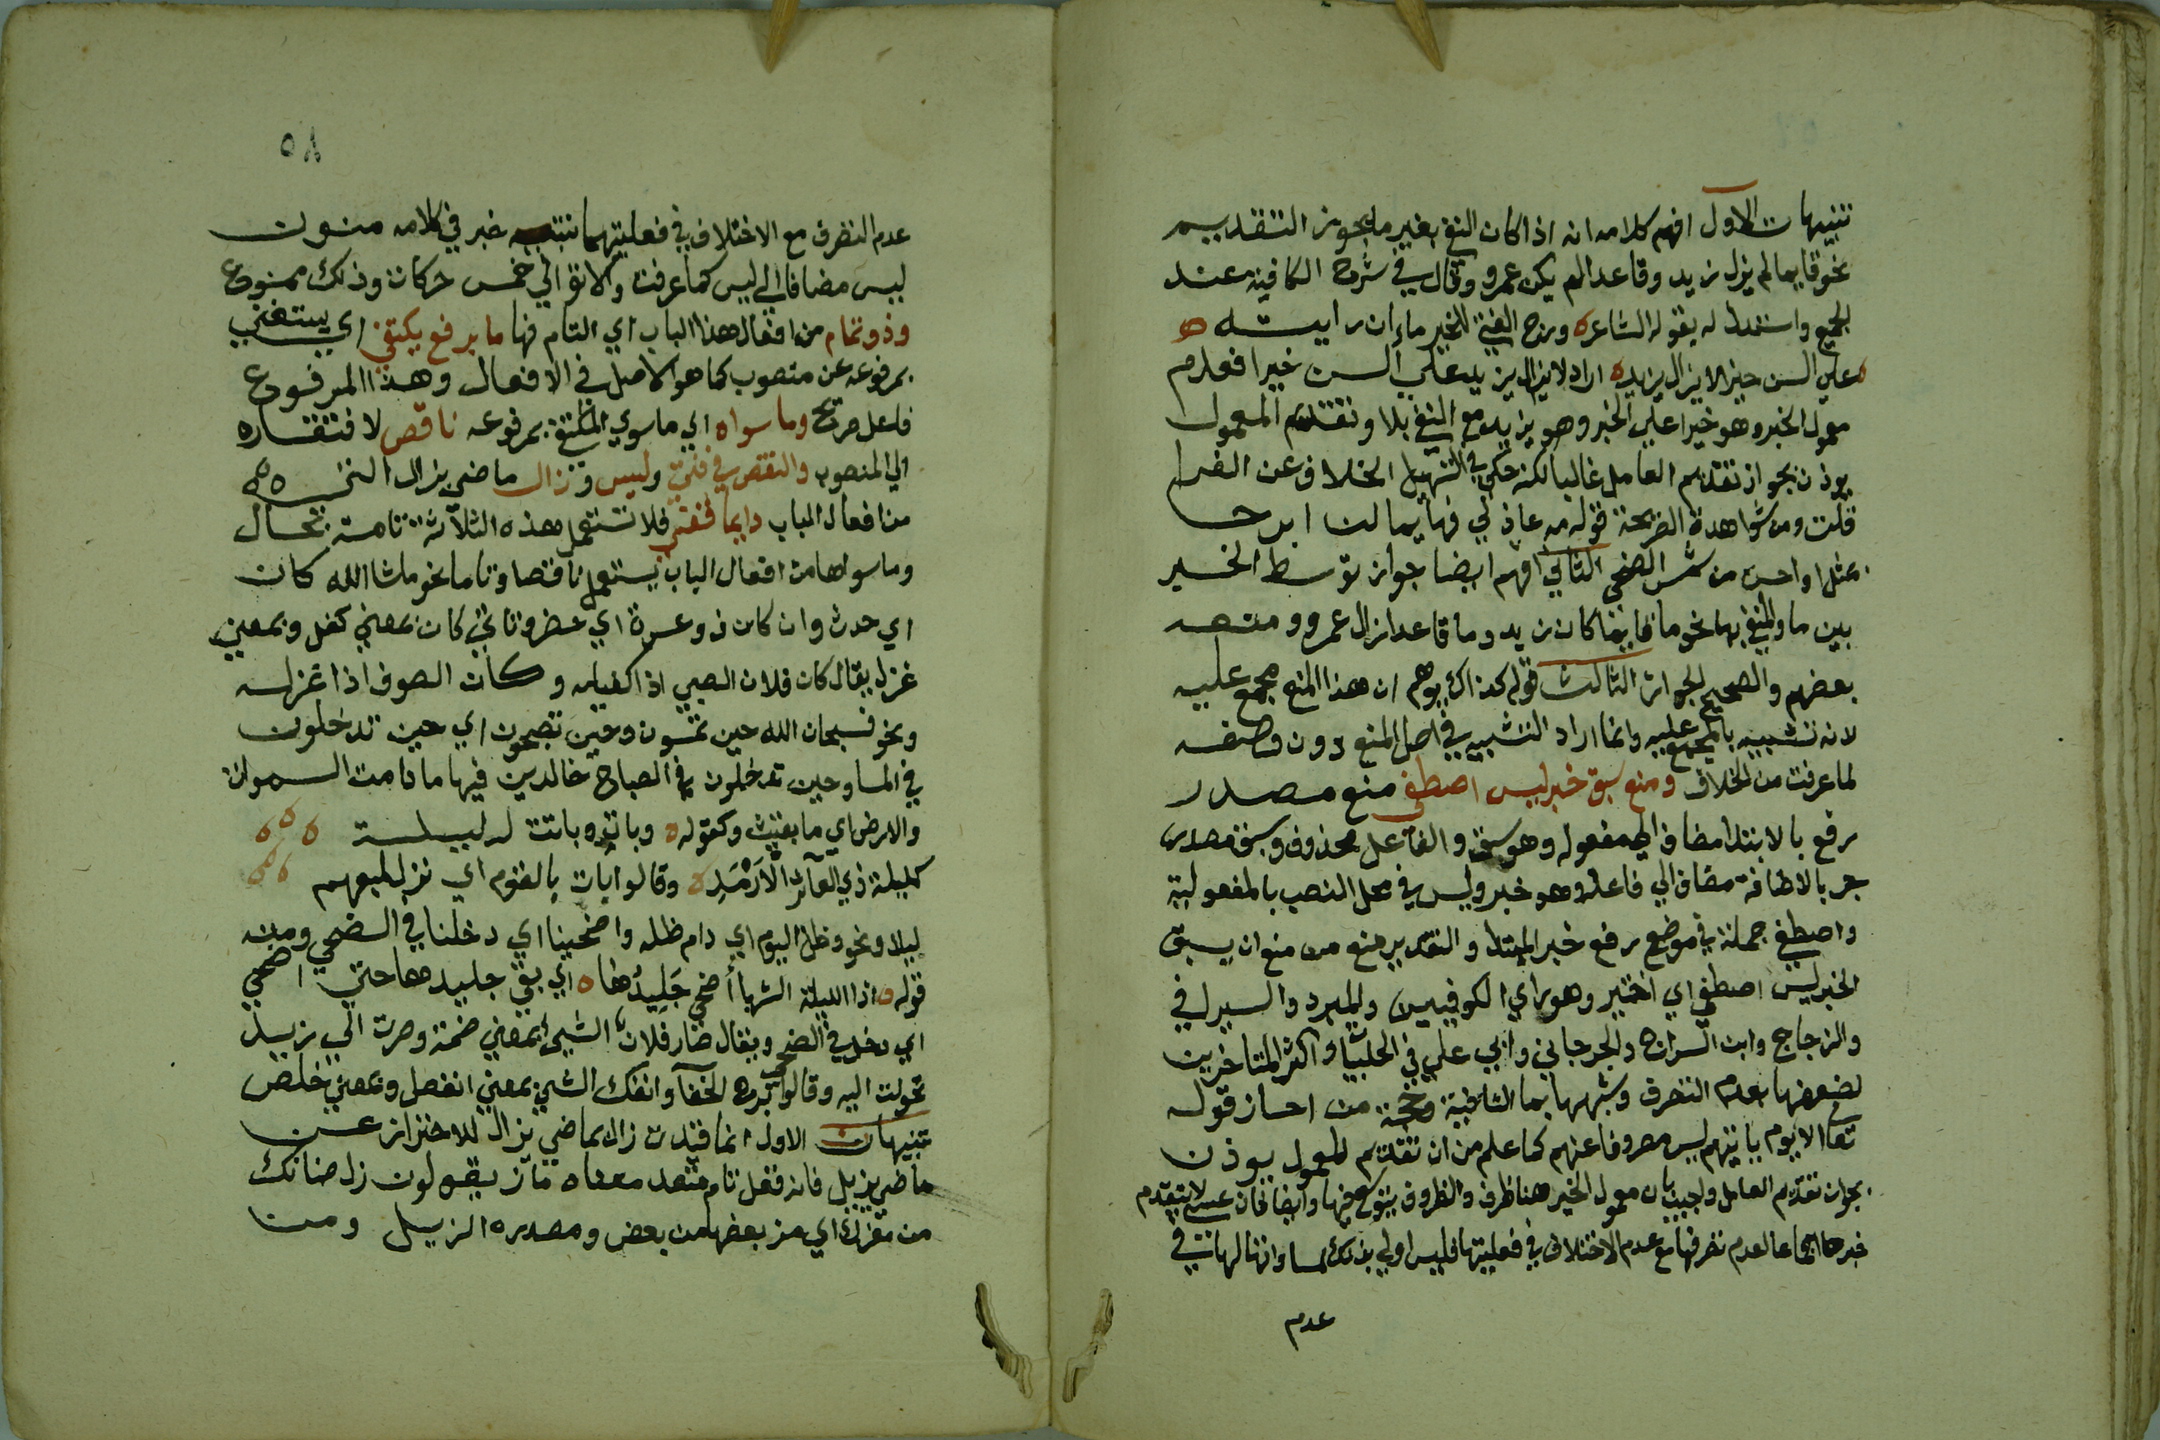 تنبيهات الاول افهم كلامه انه اذا كان النفي بغير ما يجوز التقديم
نحو قايما لم يزل زيد وقاعدا لم يكن عمرو وقال في شرح الكافية عند
الجميع واستدل له بقول الشاعر ه ورج الفتى للخير ما ان رايته ه
ه علي السن خيرا لا يزال يزيد ه اراد لا يزال يزيد علي السن خيرا فقدم
معمول الخبر وهو خيرا علي الخبر وهو يزيد مع النفي بلا وتقديم المعمول
يوذن بجواز تقديم العامل غالبا لكنه حكي في التسهيل الخلاف عن الفرا
قلت ومن شواهده الصريحة قوله مه عاذلي فهايما لن ابرحا
بمثل او احسن من شمس الضحي الثاني افهم ايضا جواز توسط الخبر
بين ما والمنفي بها نحو ما قايما كان زيد وما قاعدا زال عمرو ومنعه
بعضهم والصحيح الجواز الثالث قوله كذاك يوهم ان هذا المنع مجمع عليه
لانه تشبيه بالمجمع عليه وانما اراد التشبيه في اصل المنع دون وصفه
لما عرفت من الخلاف ومنع سبق خبر ليس اصطفي منع مصدر
رفع بالابتدا مضاف الي مفعوله وهو سبق والفاعل محذوف وسبق مصدر
جر بالاضافة مضاف الي فاعله وهو خبر وليس في محل النصب بالمفعولية
واصطفي جملة في موضع رفع خبر المبتدا والتقدير منع من منع ان يسبق
الخبر ليس اصطفي اي اختير وهو راي الكوفيين والمبرد والسيرافي
والزجاج وابن السراج والجرجاني وابي علي في الحلبيات واكثر المتاخرين
لضعفها بعدم التصرف وشبهها بما النافية وحجة من اجاز قوله
تعالي الا يوم ياتيهم ليس مصروفا عنهم كما علم من ان تقديم المعمول يوذن
بجواز تقديم العامل واجيب بان معمول الخبر هنا ظرف والظروف يتوسع فيها وايضا فان عسي لا يتقدم
خبرها اجماعا لعدم تصرفها مع عدم الاختلاف في فعليتها فليس اولي بذلك لمساواتها لها في
عدم
٥٨
عدم التصرف مع الاختلاف في فعليتها تنبيه خبر في كلامه منون
ليس مضافا الي ليس كما عرفت والا توالي خمس حركات وذلك ممنوع
وذو تمام من افعال هذا الباب اي التام منها ما برفع يكتفي اي يستغني
بمرفوعه عن منصوب كما هو الاصل في الافعال وهذا المرفوع
فاعل صريح وما سواه اي ما سوي المكتفي بمرفوعه ناقص لافتقاره
الي المنصوب والنقص في فتي وليس وزال ماضي يزال التي
من افعال الباب دايما قفي فلا تستعمل هذه الثلاثة تامة بحال
وما سواها من افعال الباب يستعمل ناقصا وتاما نحو ما شا الله كان
اي حدث وان كان ذو عسرة اي حضر وتاتي كان بمعني كفل وبمعني
غزل يقال كان فلان الصبي اذا كفله وكان الصوف اذا غزله
ونحو فسبحان الله حين تمسون وحين تصبحون اي حين تدخلون
في المسا وحين تدخلون في الصباح خالدين فيها ما دامت السموات
والارض اي ما بقيت وكقوله ه وبات وباتت له ليلة
كليلة ذي العاير الارمد ه وقالوا بات بالقوم اي نزل بهم
ليلا ونحو وظل اليوم اي دام ظله واضحينا اي دخلنا في الضحي ومنه
قوله ه اذا الليلة الشهبا أضحى جليدها ه اي بقي جليدها حتي اضحي
اي دخل في الضحي ويقال صار فلان الشي بمعني ضمه وصرت الي زيد
تحولت اليه وقالوا برح الخفا وانفك الشي بمعني انفصل وبمعني خلص
تنبيهات الاول انما قيدت زال بماضي يزال للاحتراز عن
ماضي يزيل فانه فعل تام متعد معناه ماز يقولون زل ضانك
من معزك اي مز بعضها من بعض ومصدره الزيل ومن